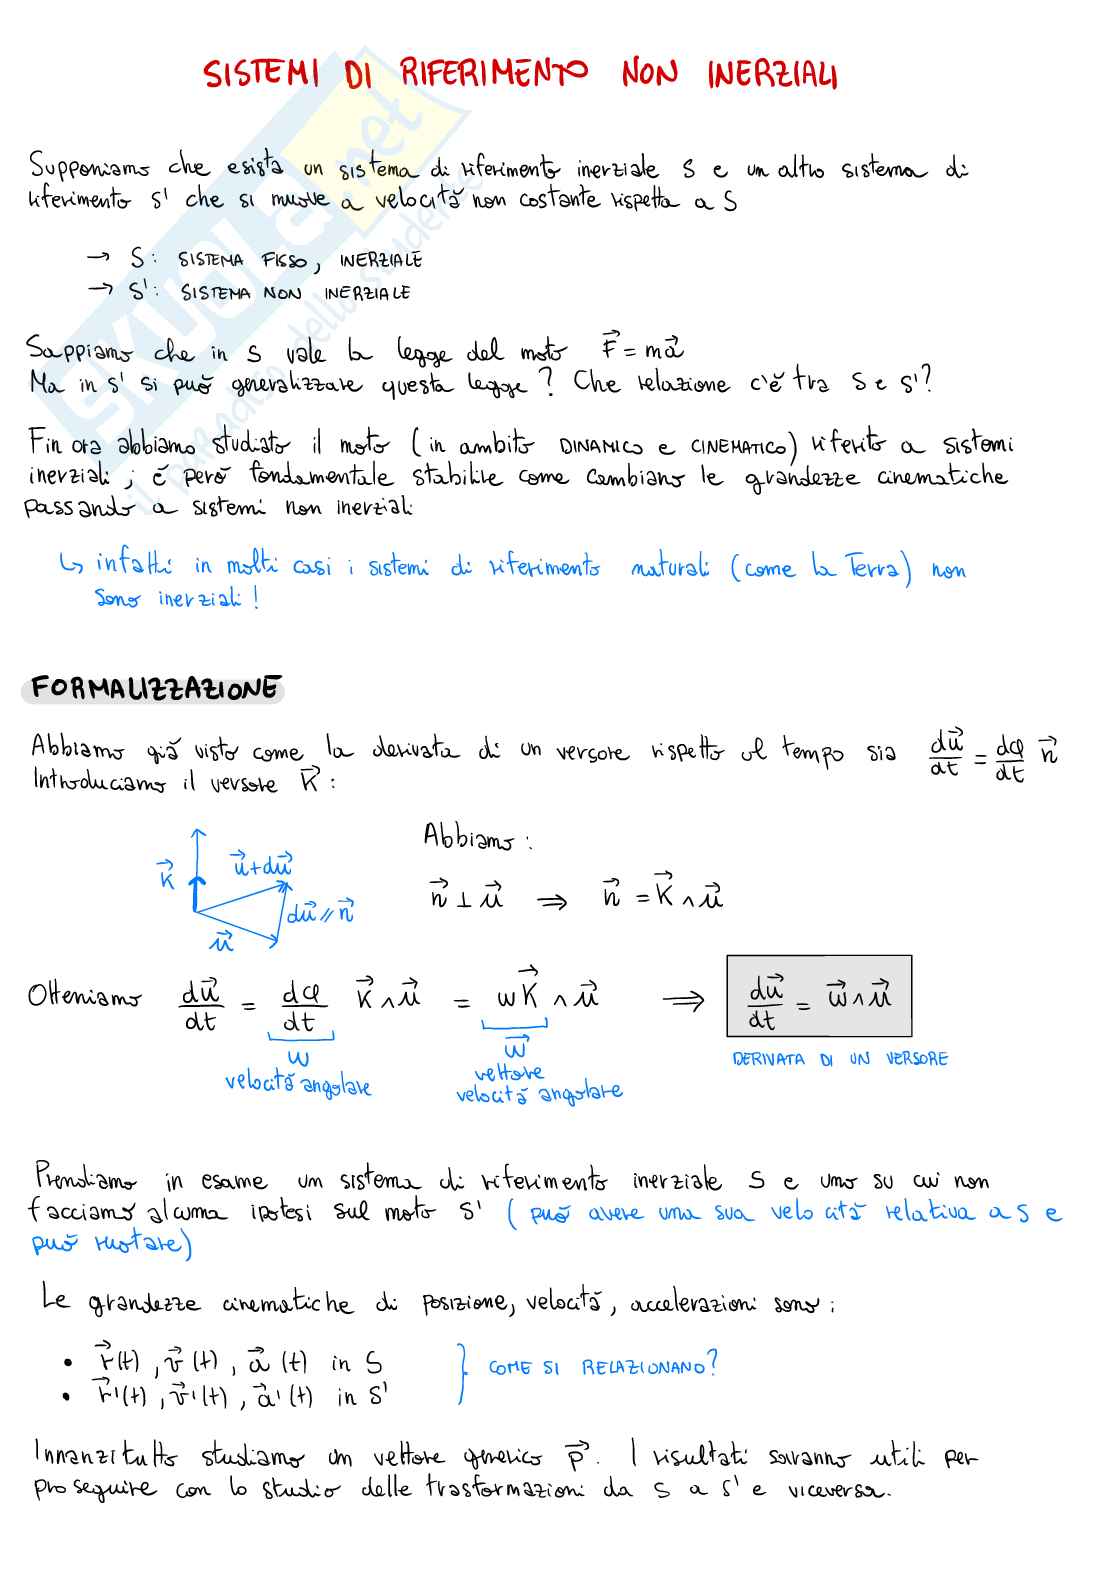 SISTEMI DI RIFERIMENTO NON INERZIALI
Supponiamo che esista un sistema di riferimento inerziale S e un altro sistema di
riferimento S' che si muove a velocità non costante rispetto a S
→ S: SISTEMA FISSO, INERZIALE
→ S': SISTEMA NON INERZIALE
Sappiamo che in S vale la legge del moto F⃗ = ma⃗
Ma in S' si può generalizzare questa legge? Che relazione c'è tra S e S'?
Fin ora abbiamo studiato il moto (in ambito DINAMICO e CINEMATICO) riferito a sistemi
inerziali; è però fondamentale stabilire come cambiano le grandezze cinematiche
passando a sistemi non inerziali
↳ infatti in molti casi i sistemi di riferimento naturali (come la Terra) non
sono inerziali!
FORMALIZZAZIONE
Abbiamo già visto come la derivata di un versore rispetto al tempo sia du⃗/dt = dφ/dt n⃗
Introduciamo il versore K⃗:
Abbiamo:
K⃗ u⃗+du⃗ du⃗ // n⃗ u⃗
n⃗ ⊥ u⃗ ⇒ n⃗ = K⃗ ∧ u⃗
Otteniamo du⃗/dt = dφ/dt K⃗ ∧ u⃗ = wK⃗ ∧ u⃗ ⇒ du⃗/dt = w⃗ ∧ u⃗
w w⃗ DERIVATA DI UN VERSORE
velocità angolare vettore
velocità angolare
Prendiamo in esame un sistema di riferimento inerziale S e uno su cui non
facciamo alcuna ipotesi sul moto S' (può avere una sua velocità relativa a S e
può ruotare)
Le grandezze cinematiche di posizione, velocità, accelerazioni sono:
• r⃗(t), v⃗(t), a⃗(t) in S
• r⃗'(t), v⃗'(t), a⃗'(t) in S'
} COME SI RELAZIONANO?
Innanzitutto studiamo un vettore generico p⃗. I risultati saranno utili per
proseguire con lo studio delle trasformazioni da S a S' e viceversa.
SKUOLA.net
il paradiso dello studente